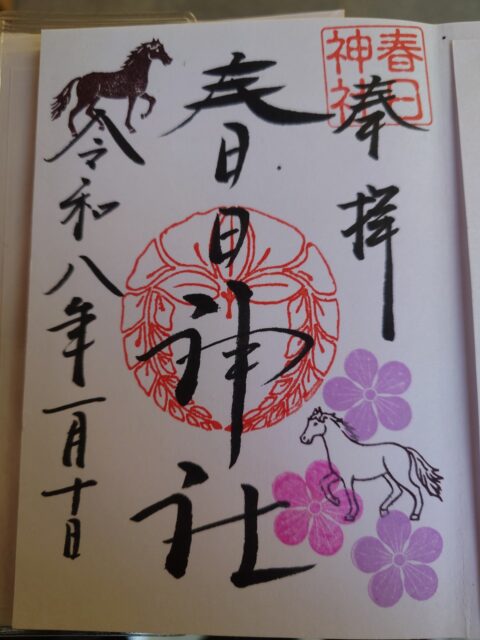 春日神社
奉拝
春日神社
令和八年一月十日